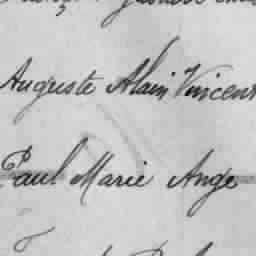 Auguste Alain Vincent
Paul Marie Ange